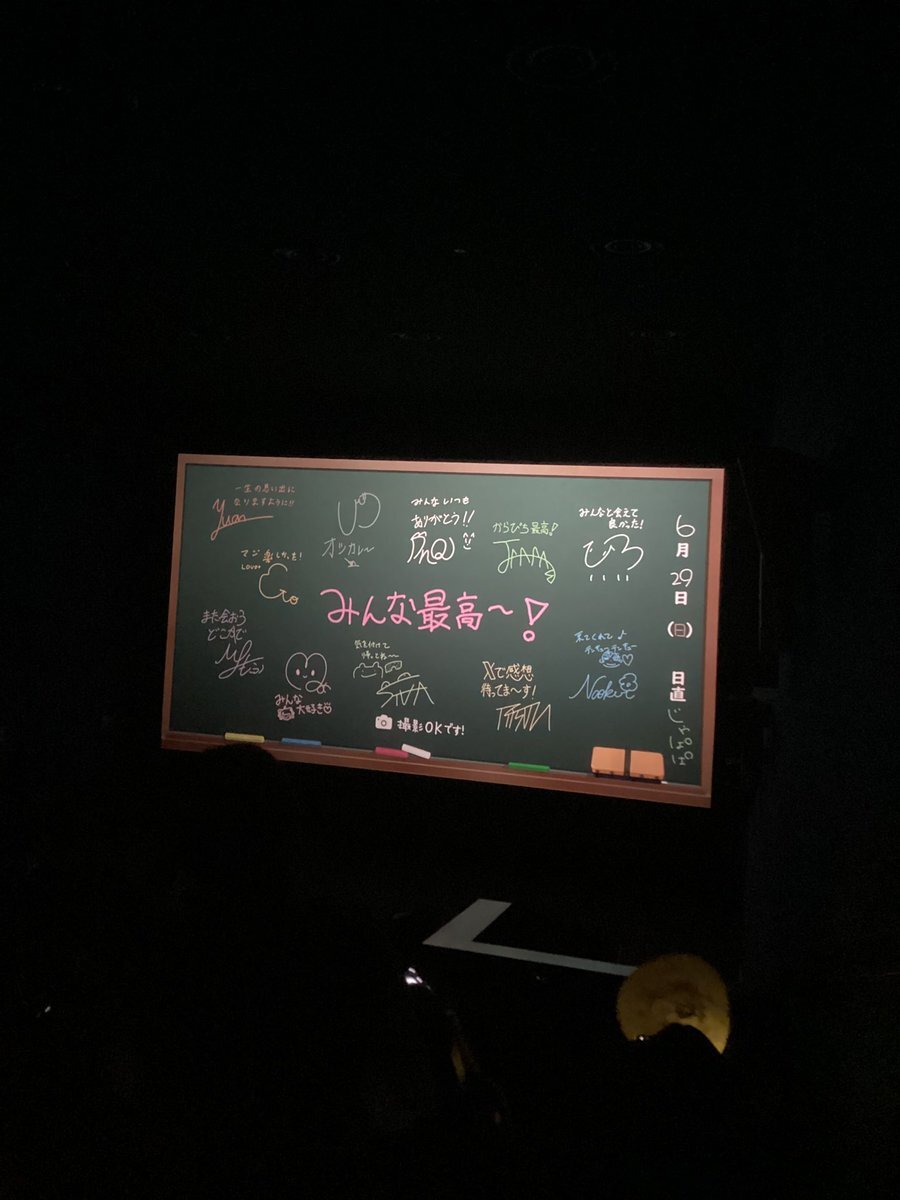 一生の思い出に
なりますように!!
Yuan
オツカレ〜
みんないつも
ありがとう!!
からぴち最高!
みんなと会えて
良かった!
マジ楽しかった!
Love
みんな最高〜!
また会おう
どこかで
みんな
大好き
気を付けて
帰ってね〜
Xで感想
待ってま〜す!
来てくれて♪
Naoki
撮影OKです!
6月29日(日)
日直
じゃぱぱ